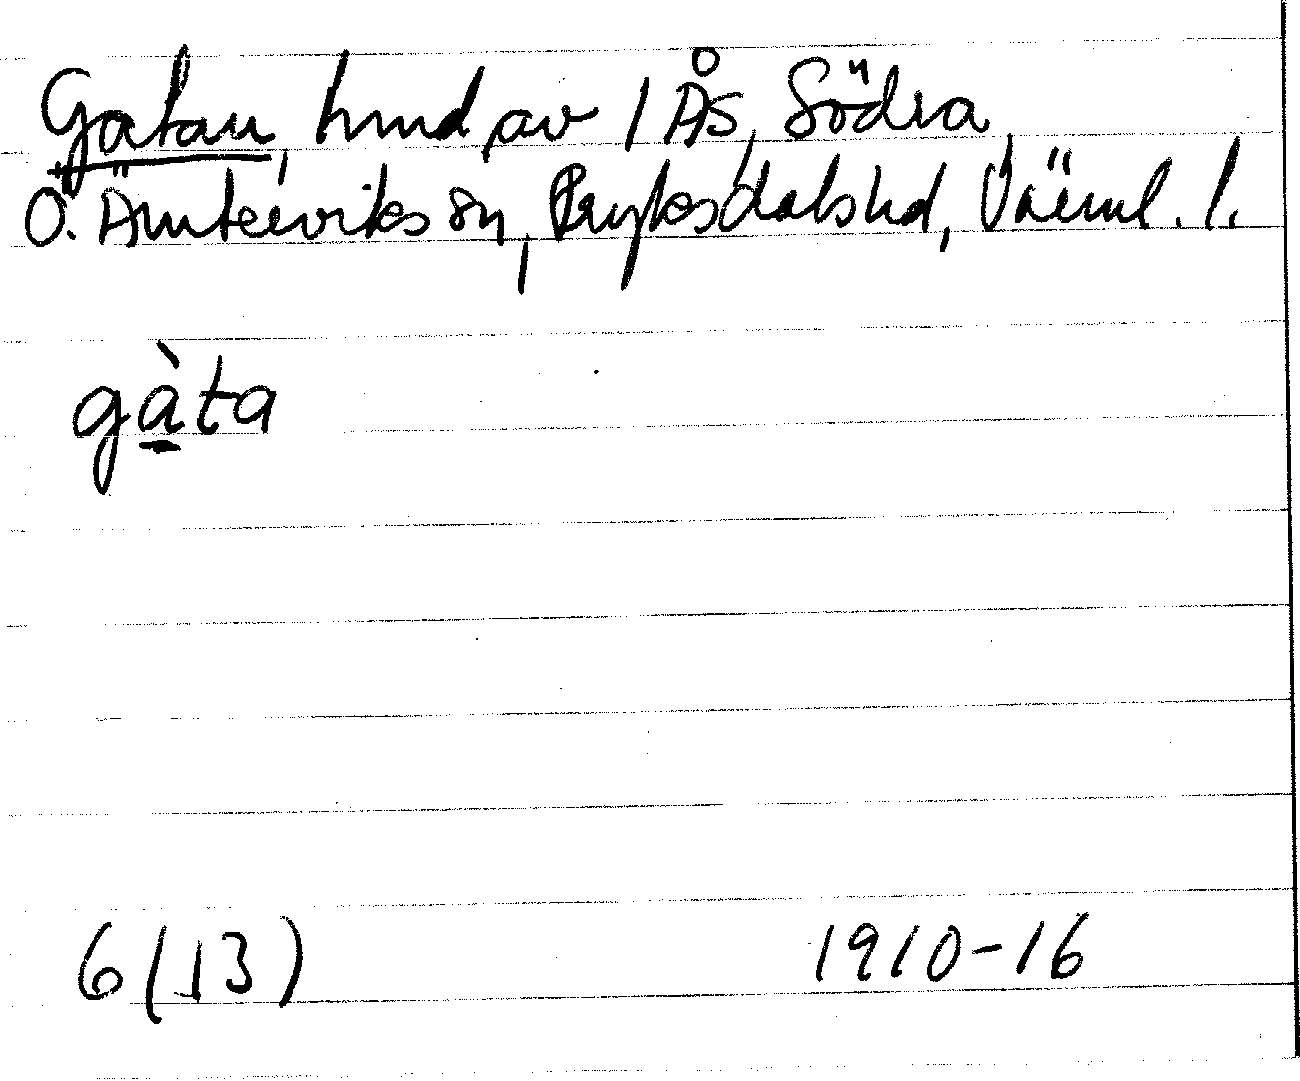 Gatan, hmd av 1 Ås, Södra
Ö. Ämterviks sn, Fryksdals hd, Värml. l.
gàta
6 (13)
1910-16